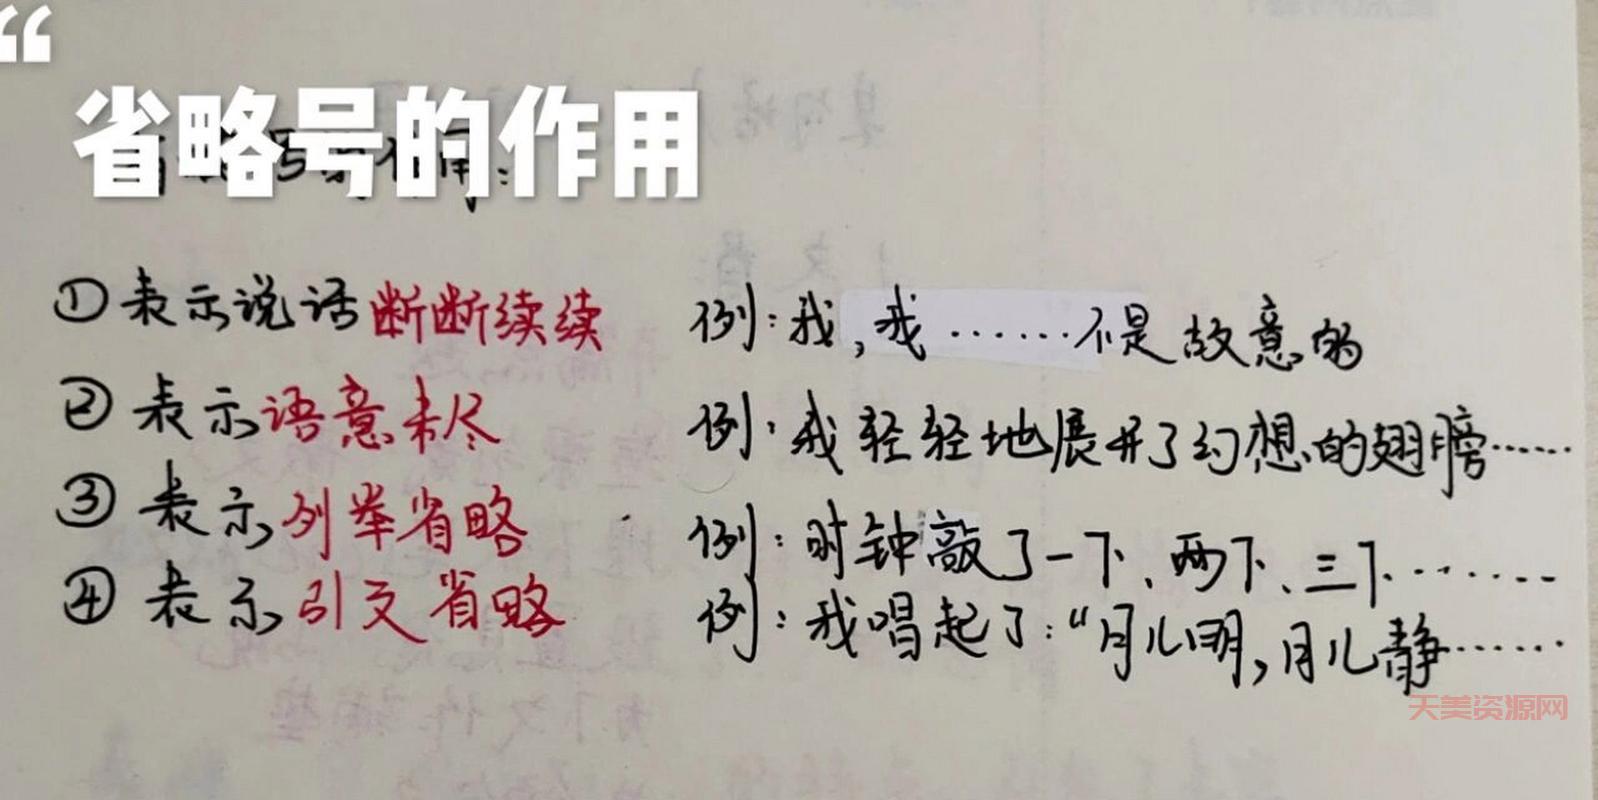 “
省略号的作用
①表示说话断断续续 例:我,我……不是故意的
②表示语意未尽 例:我轻轻地展开了幻想的翅膀……
③表示列举省略 例:时钟敲了一下、两下、三下……
④表示引文省略 例:我唱起了:“月儿明,月儿静……
天美资源网